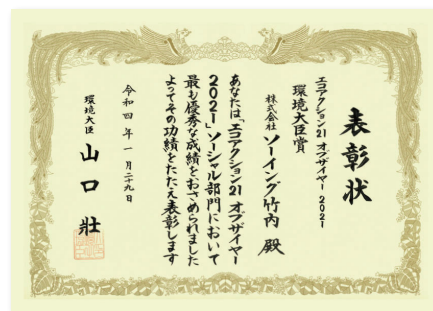 表彰状
エコアクション21 オブザイヤー 2021
環境大臣賞
株式会社 ソーイング竹内 殿
あなたは「エコアクション21 オブザイヤー
2021」ソーシャル部門において
最も優秀な成績をおさめられました
よってその功績をたたえ表彰します
令和四年一月二十九日
環境大臣 山口壯